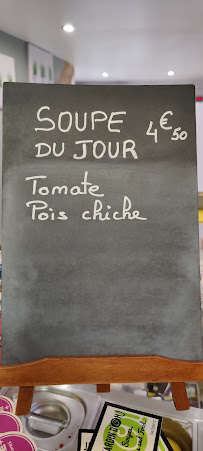 SOUPE
DU JOUR
4€50
Tomate
Pois chiche